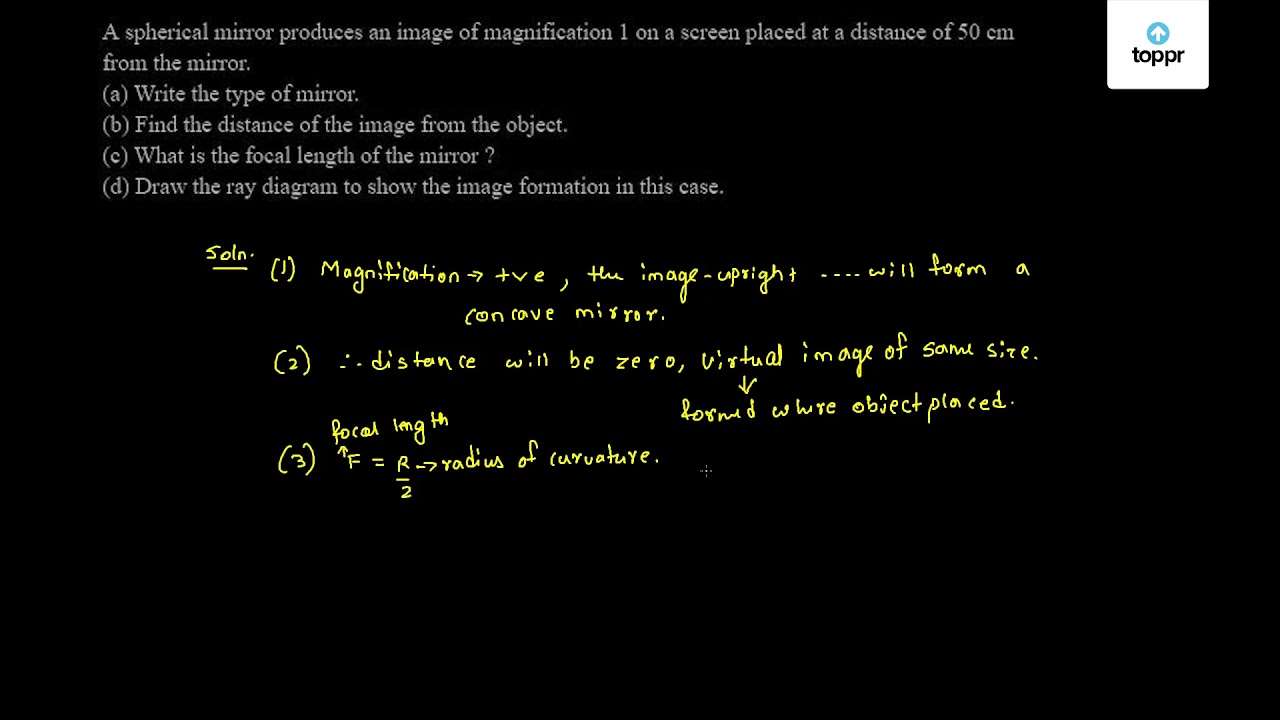 A spherical mirror produces an image of magnification 1 on a screen placed at a distance of 50 cm
from the mirror.
(a) Write the type of mirror.
(b) Find the distance of the image from the object.
(c) What is the focal length of the mirror ?
(d) Draw the ray diagram to show the image formation in this case.
toppr
Soln.
(1) Magnification → +ve, the image-upright .... will form a
concave mirror.
(2) ∴ distance will be zero, virtual image of same size.
↓
formed where object placed.
focal length
(3) ↑F = R/2 → radius of curvature.